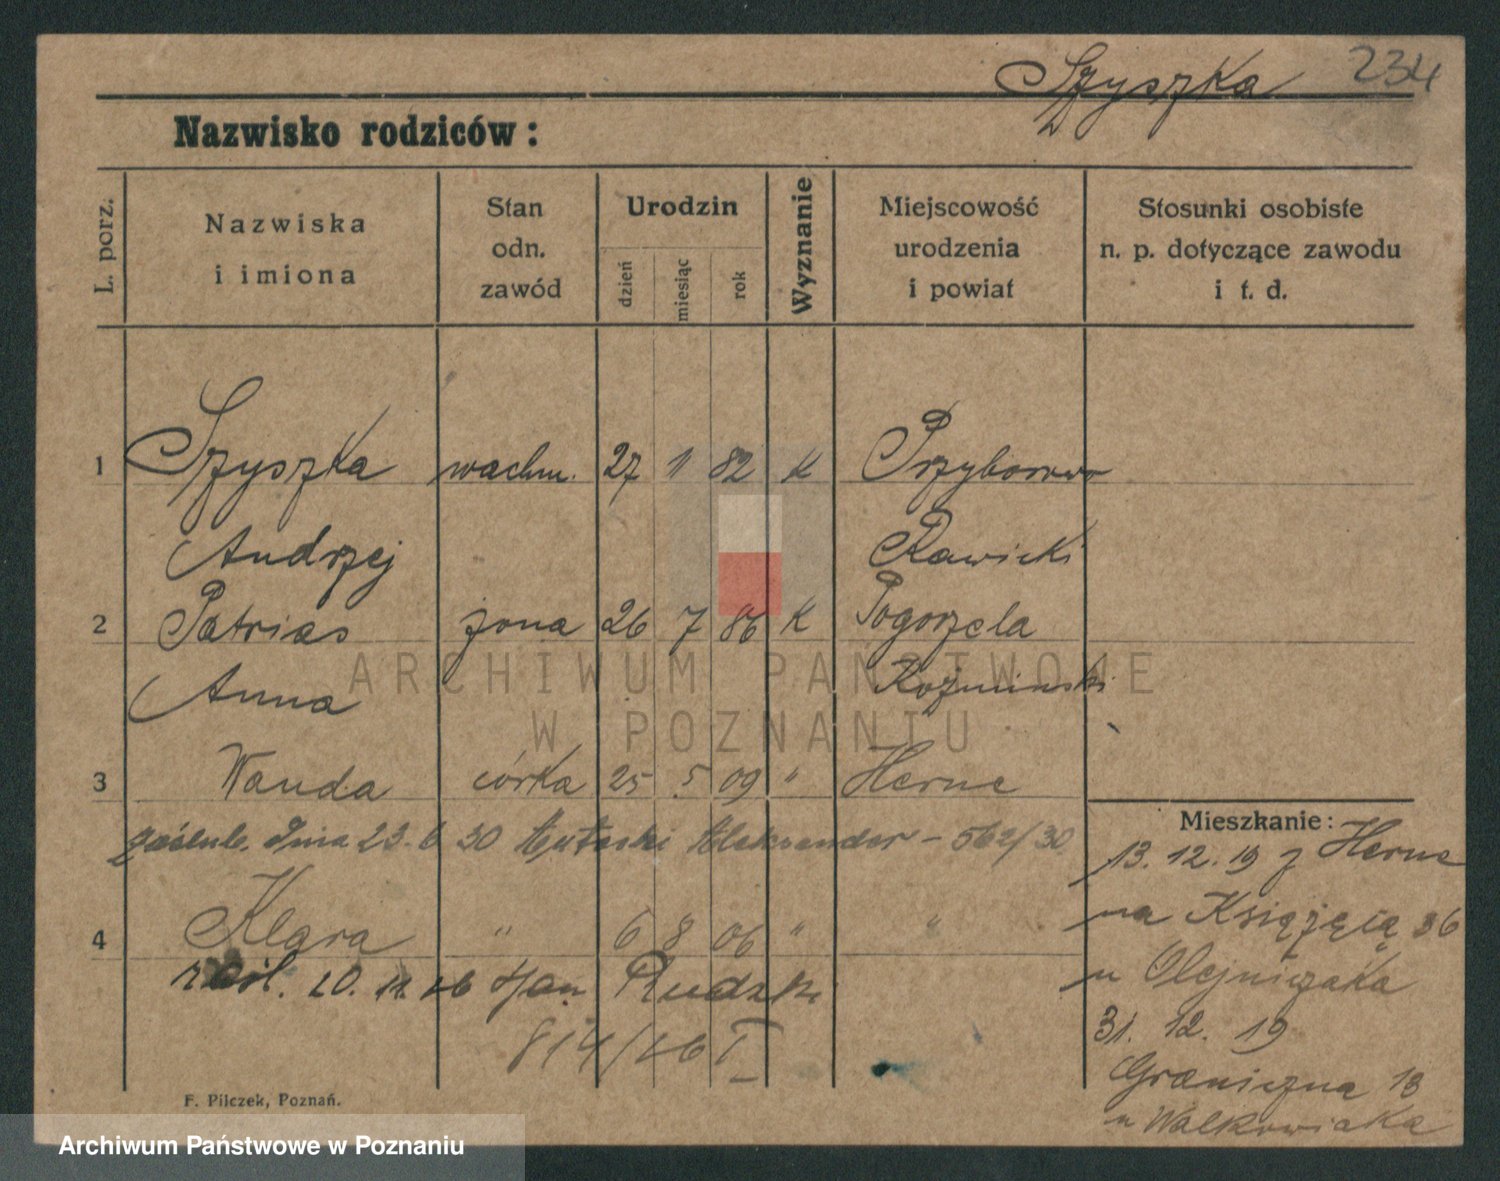 Szyszka 234
Nazwisko rodziców:
L. porz.
Nazwiska
i imiona
Stan
odn.
zawód
Urodzin
dzień
miesiąc
rok
Wyznanie
Miejscowość
urodzenia
i powiat
Stosunki osobiste
n. p. dotyczące zawodu
i t. d.
1 Szyszka wachm. 27 11 82 K Przyborowo
Andrzej Rawicki
2 Patrias żona 26 7 86 K Pogorzela
Anna Koźmiński
3 Wanda córka 25 5 09 " Herne
zaślub. dnia 23. 6 30 Aleksander - 562/30
4 Klara " 6 8 06 " "
zaśl. 20. 11. 26 Jan Rudzki
814/26 I
Mieszkanie:
13. 12. 19 z Herne
na Książęcą 36
u Olejniczaka
31. 12. 19
Graniczna 13
u Walkowiaka
F. Pilczek, Poznań.
ARCHIWUM PAŃSTWOWE
W POZNANIU
Archiwum Państwowe w Poznaniu